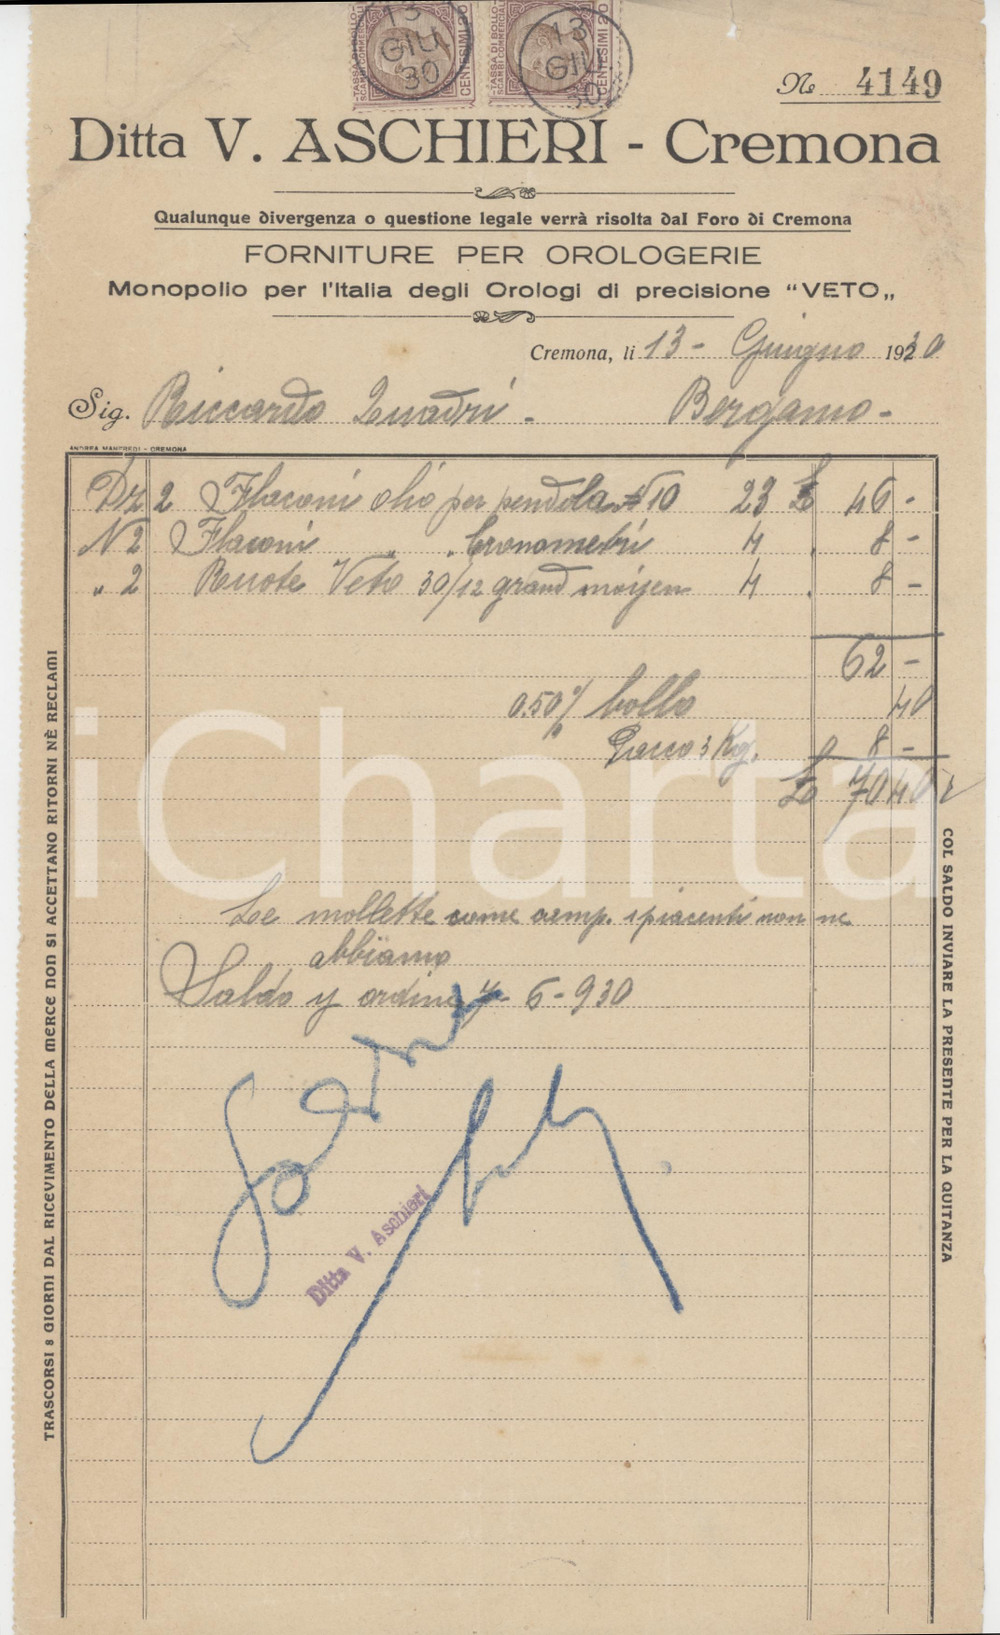 TASSA DI BOLLO
SCAMBI COMMERCIALI
CENTESIMI 20
13
GIU
30
TASSA DI BOLLO
SCAMBI COMMERCIALI
CENTESIMI 20
13
GIU
30
No 4149
Ditta V. ASCHIERI - Cremona
Qualunque divergenza o questione legale verrà risolta dal Foro di Cremona
FORNITURE PER OROLOGERIE
Monopolio per l'Italia degli Orologi di precisione "VETO„
Cremona, li 13 - Giugno 1930
Sig. Riccardo Quadri - Bergamo -
ANDREA MANFREDI - CREMONA
Dz 2 Flaconi olio per pendola N 10 23 £ 46 -
N 2 Flaconi " " Cronometri 4 . 8 -
" 2 Ruote Veto 30/12 grand moijen 4 . 8 -
62 -
0.50 % bollo 40
Pacco 3 Kg. 8 -
£ 70 40
Le mollette come camp. spiacenti non ne
abbiamo
Saldo y ordine 7 - 6 - 930
Ditta V. Aschieri
TRASCORSI 8 GIORNI DAL RICEVIMENTO DELLA MERCE NON SI ACCETTANO RITORNI NÈ RECLAMI
COL SALDO INVIARE LA PRESENTE PER LA QUITANZA
iCharta